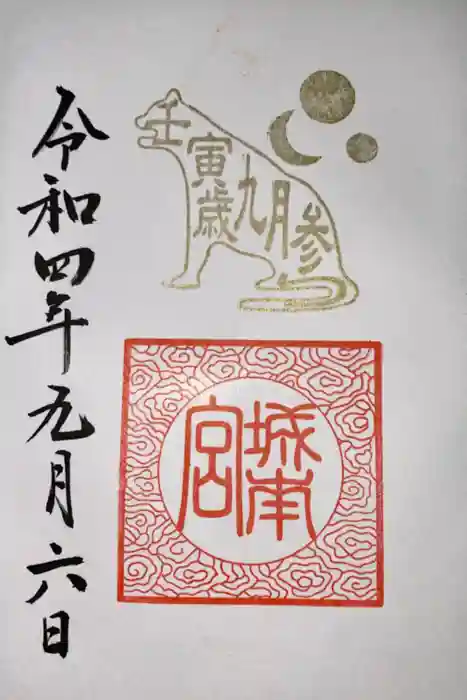 令和四年九月六日
壬寅歳九月参
城南宮